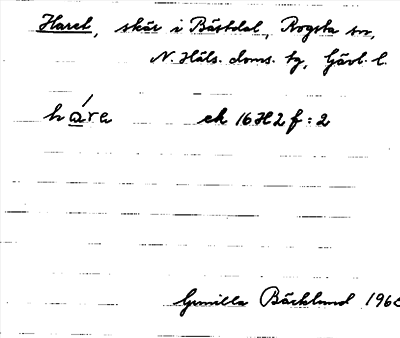 Haret, skär i Bästdal, Rogsta sn,
N. Häls. doms. tg, Gävl. l.
háre ek 16H2f:2
Gunilla Bäcklund 196